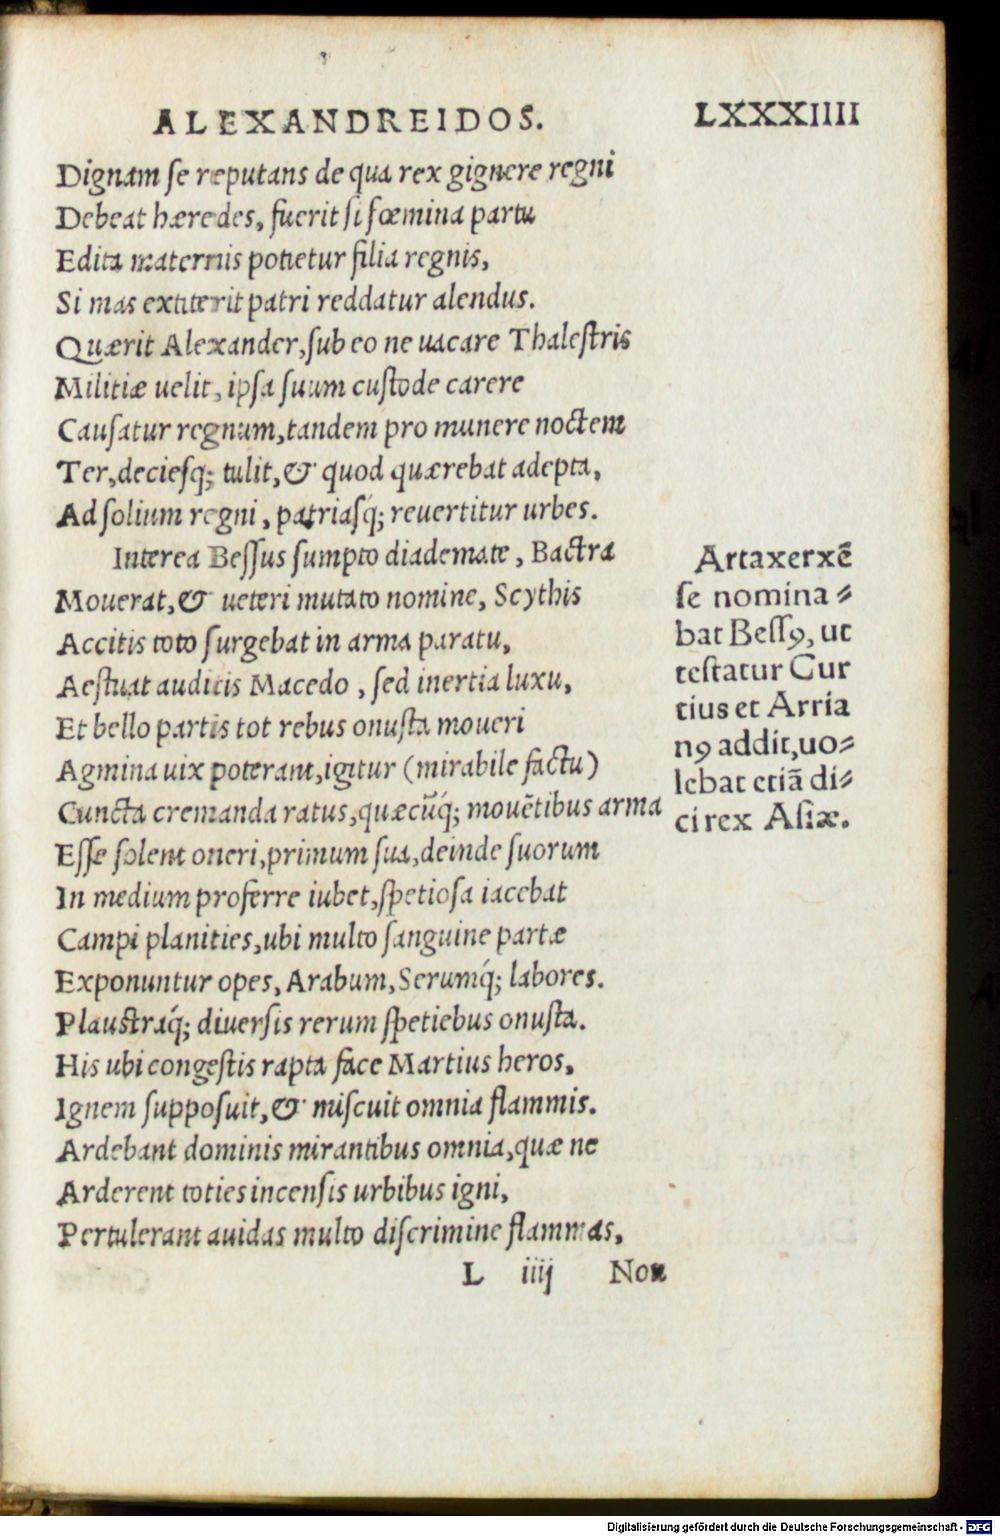 ALEXANDREIDOS. LXXXIIII
Dignam se reputans de qua rex gignere regni
Debeat hæredes, fuerit si fœmina partu
Edita maternis potietur filia regnis,
Si mas extiterit patri reddatur alendus.
Quærit Alexander, sub eo ne uacare Thalestris
Militiæ uelit, ipsa suum custode carere
Causatur regnum, tandem pro munere noctem
Ter, deciesq; tulit, & quod quærebat adepta,
Ad solium regni, patriasq́; reuertitur urbes.
Interea Bessus sumpto diademate, Bactra
Mouerat, & ueteri mutato nomine, Scythis
Accitis toto surgebat in arma paratu,
Aestuat auditis Macedo, sed inertia luxu,
Et bello partis tot rebus onusta moueri
Agmina uix poterant, igitur (mirabile factu)
Cuncta cremanda ratus, quæcũq́; mouẽtibus arma
Esse solent oneri, primum sua, deinde suorum
In medium proferre iubet, spetiosa iacebat
Campi planities, ubi multo sanguine partæ
Exponuntur opes, Arabum, Serumq́; labores.
Plaustraq́; diuersis rerum spetiebus onusta.
His ubi congestis rapta face Martius heros,
Ignem supposuit, & miscuit omnia flammis.
Ardebant dominis mirantibus omnia, quæ ne
Arderent toties incensis urbibus igni,
Pertulerant auidas multo discrimine flammas,
L iiij Non
Artaxerxẽ
se nomina⸗
bat Bessꝰ, ut
testatur Cur
tius et Arria
nꝰ addit, uo⸗
lebat etiã di⸗
ci rex Asiæ.
Digitalisierung gefördert durch die Deutsche Forschungsgemeinschaft - DFG